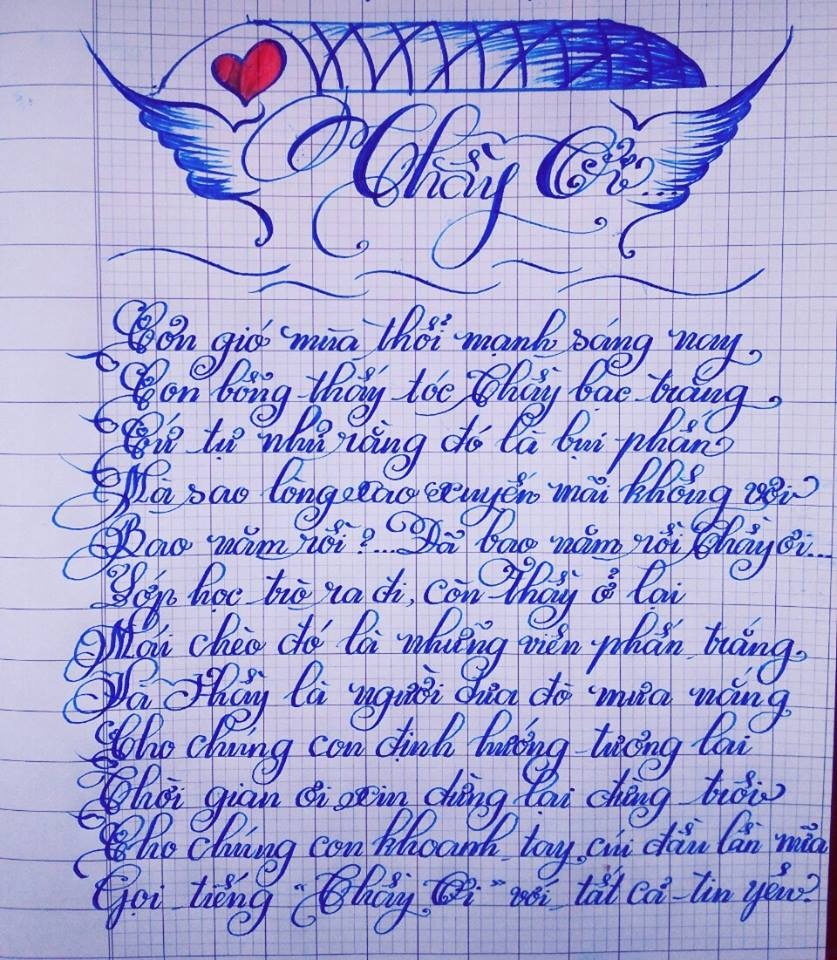 Thầy Ơi...
Cơn gió mùa thổi mạnh sáng nay
Con bỗng thấy tóc Thầy bạc trắng
Cứ tự nhủ rằng đó là bụi phấn
Mà sao lòng xao xuyến mãi không vơi
Bao năm rồi?... Đã bao năm rồi Thầy ơi...
Lớp học trò ra đi, còn Thầy ở lại
Mái chèo đó là những viên phấn trắng
Và Thầy là người đưa đò mưa nắng
Cho chúng con định hướng tương lai
Thời gian ơi xin dừng lại đừng trôi
Cho chúng con khoanh tay cúi đầu lần nữa
Gọi tiếng "Thầy Ơi" với tất cả tin yêu.